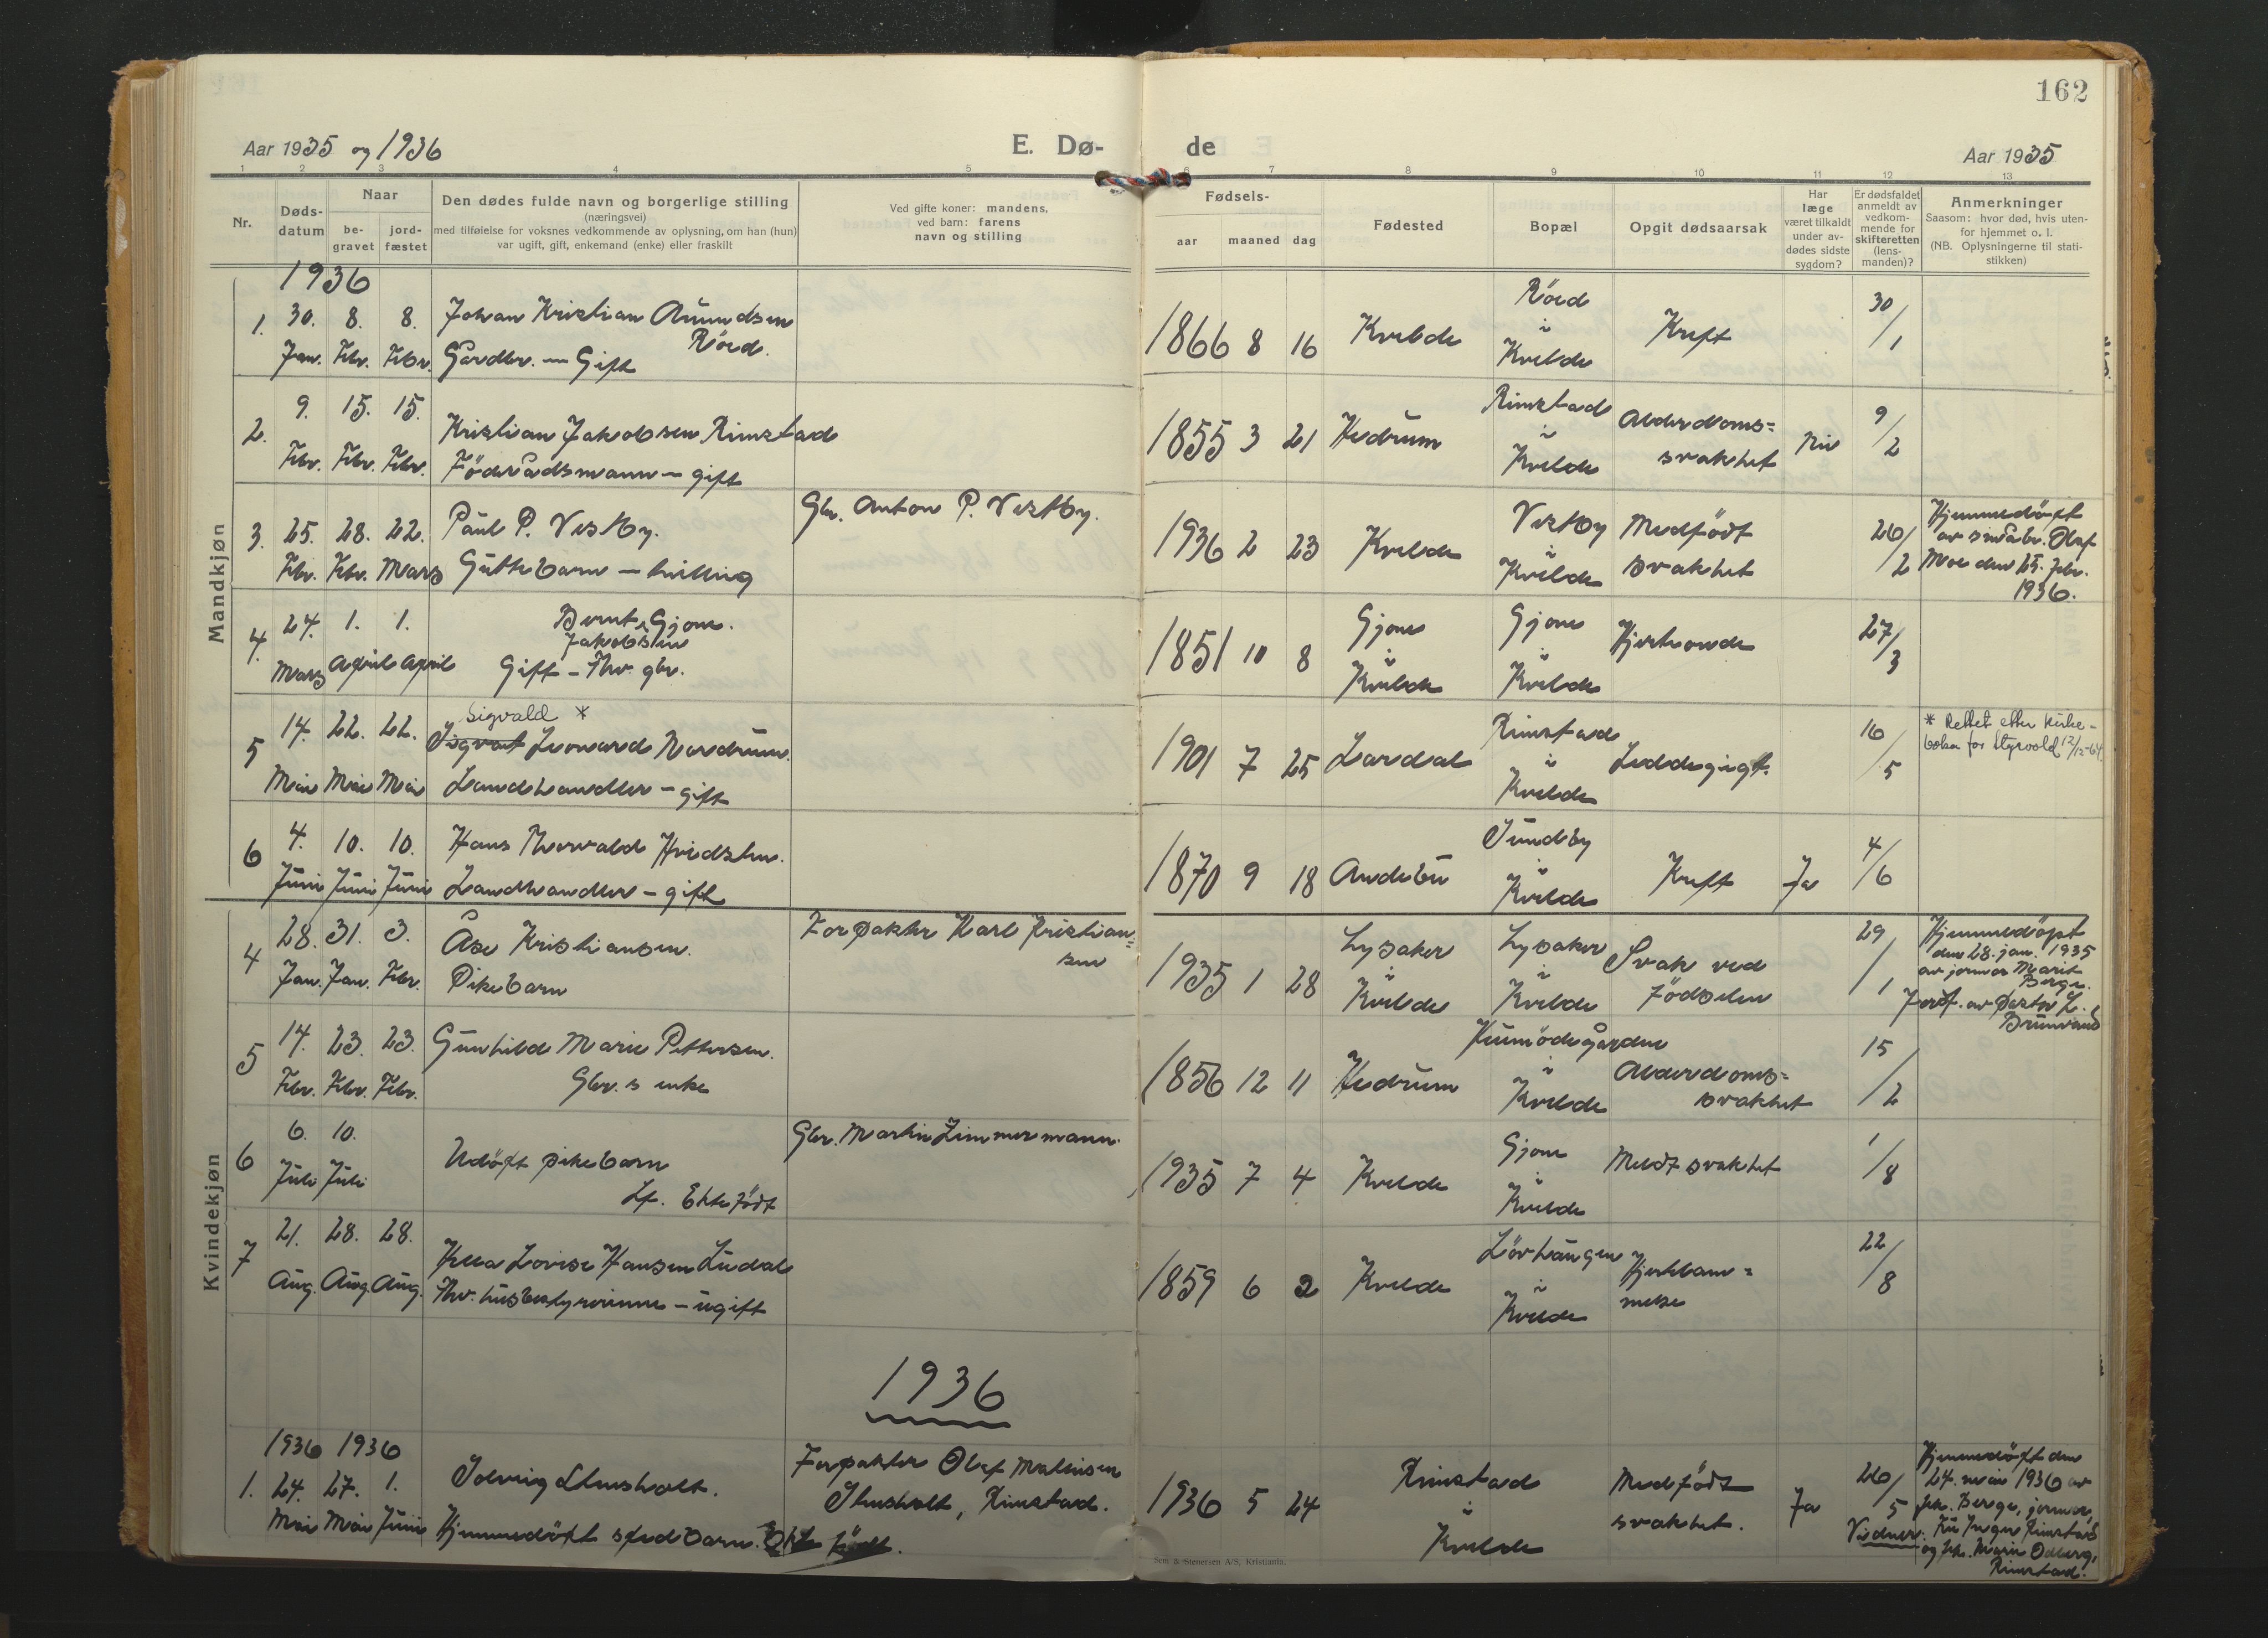 162
Aar 1935 og 1936
E. Dø-
de
Aar 1935
1 2 3 4 5 6 7 8 9 10 11 12 13
Nr.
Døds-
datum
Naar
be-
gravet
jord-
fæstet
Den dødes fulde navn og borgerlige stilling
(næringsvei)
med tilføielse for voksnes vedkommende av oplysning, om han (hun)
var ugift, gift, enkemand (enke) eller fraskilt
Ved gifte koner: mandens,
ved barn: farens
navn og stilling
Fødsels-
aar maaned dag
Fødested
Bopæl
Opgit dødsaarsak
Har
læge
været tilkaldt
under av-
dødes sidste
sygdom?
Er dødsfaldet
anmeldt av
vedkom-
mende for
skifteretten
(lens-
manden)?
Anmerkninger
Saasom: hvor død, hvis uten-
for hjemmet o. l.
(NB. Oplysningerne til stati-
stikken)
Mandkjøn
1936
1. 30. 8. 8. Johan Kristian Amundsen
Röed.
Jan. Febr. Febr. Gårdbr. — Gift
1866 8 16 Kvelde
Röed
i
Kvelde
Kreft
30/1
2. 9. 15. 15.
Kristian Jakobsen Rimstad
Febr. Febr. Febr. Föderådsmann — gift
1855 3 21 Hedrum
Rimstad
i
Kvelde
Alderdoms=
svakhet
Nei
9/2
3. 25. 28. 22. Paul P. Vestby.
Febr. Febr. Mars Guttebarn — tvilling
Gbr. Anton P. Vestby.
1936 2 23 Kvelde
Vestby
i
Kvelde
Medfödt
svakhet
26/2
Hjemmedöpt
av småbr. Olaf
Moe den 25. febr.
1936.
4. 24. 1. 1. Bernt Gjone.
Jakobsen
Mars April April Gift — Fhv. gbr.
1851 10 8
Gjone
i
Kvelde
Gjone
i
Kvelde
Hjerteonde
27/3
5 14. 22. 22.
Sigvald *
Sigvart Leonard Nordrum.
Mai Mai Mai Landhandler — gift
1901 7 25 Lardal
Rimstad
i
Kvelde
Leddegigt.
16/5
* Rettet etter kirke-
boka for Styrvold 12/12-64.
6 4. 10. 10. Hans Thorvald Hvidsten.
Juni Juni Juni Landhandler — gift
1870 9 18 Andebu
Sundby
i
Kvelde
Kreft
Ja
4/6
Kvindekjøn
4 28. 31. 3. Åse Kristiansen.
Jan. Jan. Febr. Pikebarn
Forpakter Karl Kristian=
sen
1935 1 28
Lysaker
i
Kvelde
Lysaker
i
Kvelde
Svak ved
födselen
29/1
Hjemmedöpt
den 28. jan. 1935
av jormor Marit
Berge.
Jordf. av pastor L.
Brunvand
5 14. 23. 23. Gunhilde Marie Pettersen.
Febr. Febr. Febr. Gbr.s enke
1856 12 11 Hedrum
i
Kvelde
Alderdoms=
svakhet
15/2
6 6. 10.
Juli Juli
Udöpt pikebarn
Lf. Ektefödt
Gbr. Martin Zimmermann.
1935 7 4 Kvelde
Gjone
i
Kvelde
Medf svakhet
1/8
7 21. 28. 28.
Aug. Aug. Aug.
Lovise Hansen
Fhv. husbestyrerinne — ugift
1859 6 2 Kvelde
Lövhaugen
i
Kvelde
Hjertelam=
melse
22/8
1936
1936 1936
1. 24. 27. 1.
Mai Mai Juni
Solveig Stensholt.
Hjemmedöpt spedbarn. Ekte födt.
Forpakter Olaf Mathisen
Stensholt, Rimstad.
1936 5 24
Rimstad
i
Kvelde
Medfödt
svakhet.
Ja
26/5
Hjemmedöpt den
24. mai 1936 av
frk. Berge, jormor,
Vidner: Fru Inger Rimstad
og frk. Marie Odberg,
Rimstad.
Sem & Stenersen A/S, Kristiania.